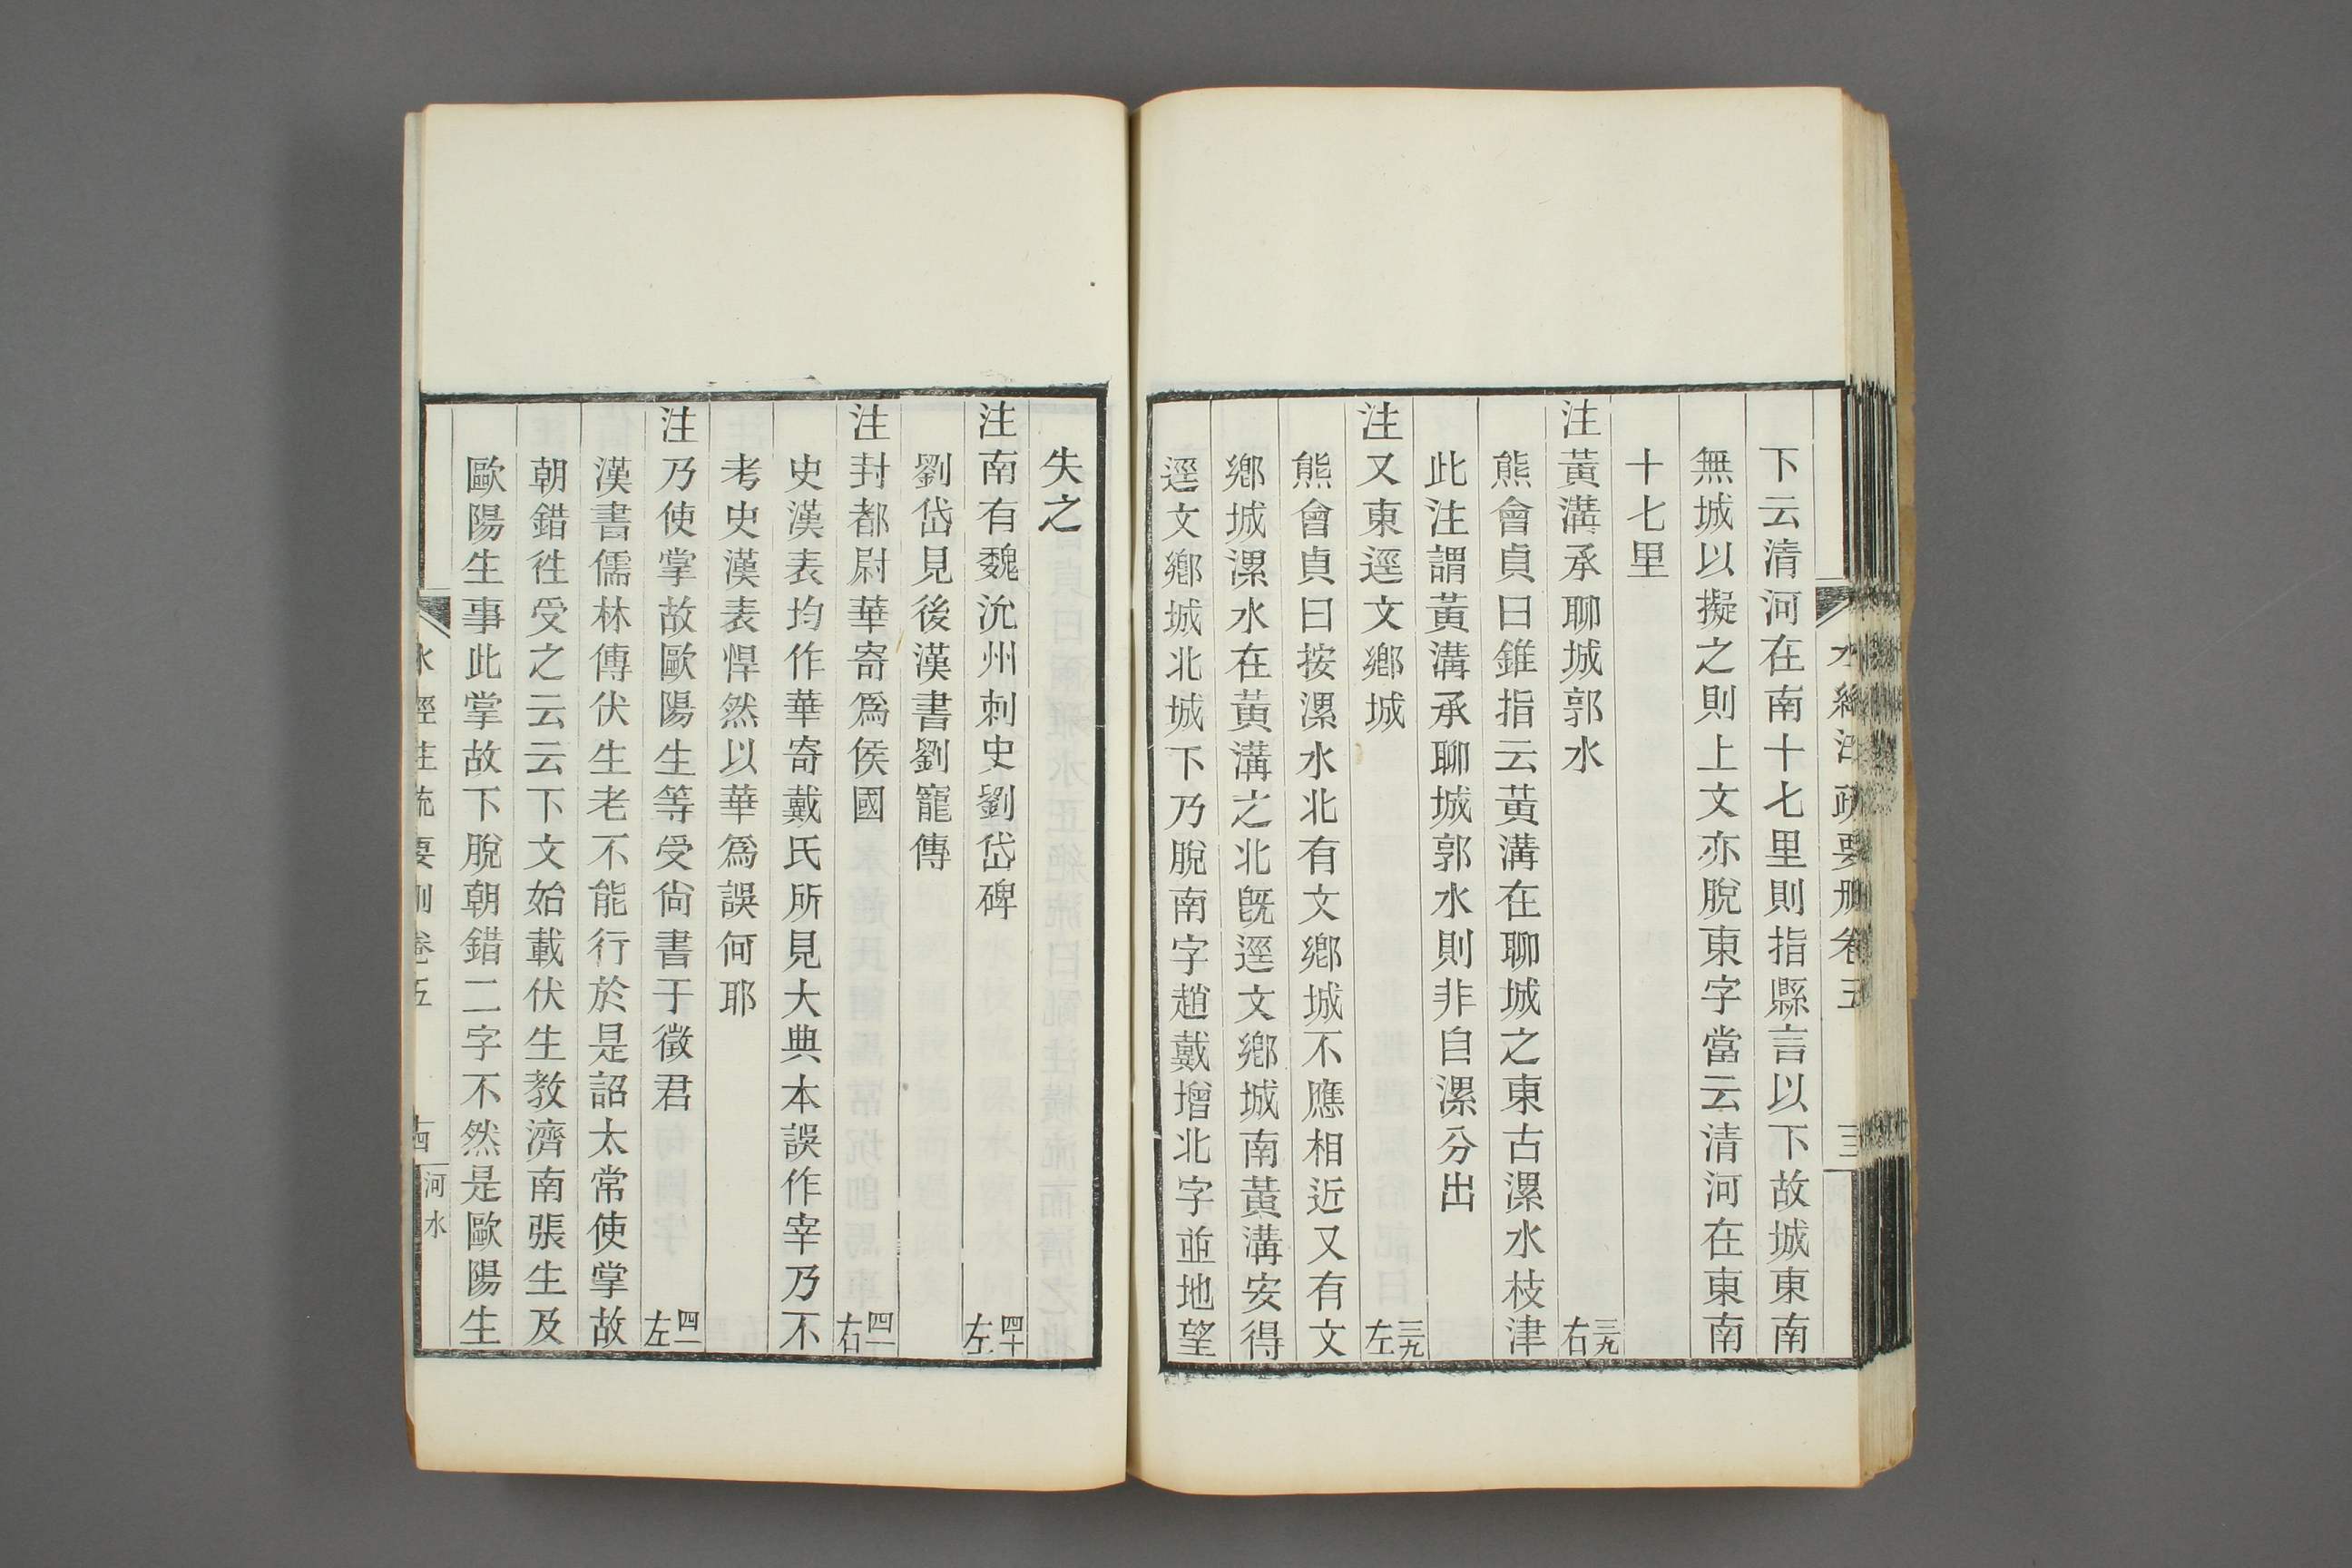 下云清河在南十七里則指縣言以下故城東南
無城以擬之則上文亦脫東字當云清河在東南
十七里
注黃溝承聊城郭水 三九右
熊會貞曰錐指云黃溝在聊城之東古漯水枝津
此注謂黃溝承聊城郭水則非自漯分出
注又東逕文鄉城 三九左
熊會貞曰按漯水北有文鄉城不應相近又有文
鄉城漯水在黃溝之北旣逕文鄉城南黃溝安得
逕文鄉城北城下乃脫南字趙戴增北字並地望
失之
注南有魏沇州刺史劉岱碑 四十左
劉岱見後漢書劉寵傳
注封都尉華寄爲侯國 四一右
史漢表均作華寄戴氏所見大典本誤作宰乃不
考史漢表悍然以華爲誤何耶
注乃使掌故歐陽生等受尙書于徵君 四一左
漢書儒林傳伏生老不能行於是詔太常使掌故
朝錯徃受之云云下文始載伏生教濟南張生及
歐陽生事此掌故下脫朝錯二字不然是歐陽生
水經注疏要刪卷五 十四 河水